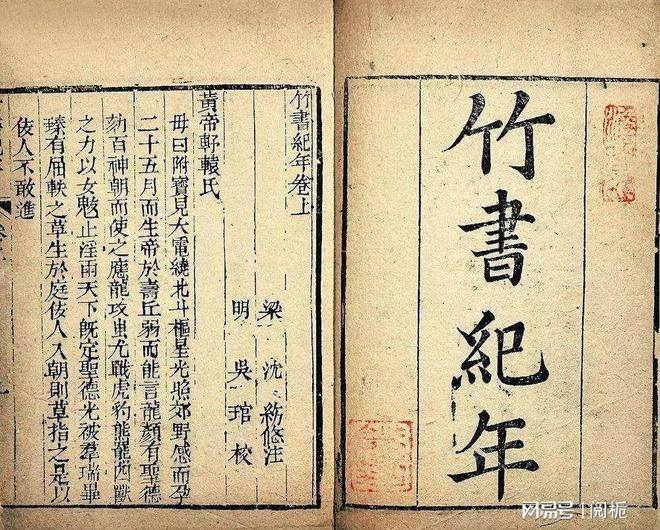 竹書紀年
竹書紀年卷上
梁 沈約附注
明 吳琯校
黃帝軒轅氏
母曰附寶見大電繞北斗樞星光照郊野感而孕
二十五月而生帝於壽丘弱而能言龍顏有聖德
劾百神朝而使之應龍攻蚩尤戰虎豹熊羆四獸
之力以女魃止淫雨天下既定聖德光被羣瑞畢
臻有屈軼之草生於庭佞人入朝則草指之是以
佞人不敢進
网易号 | 阅栀